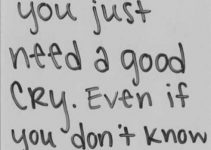 you just
need a good
CRY. Even if
you don't know